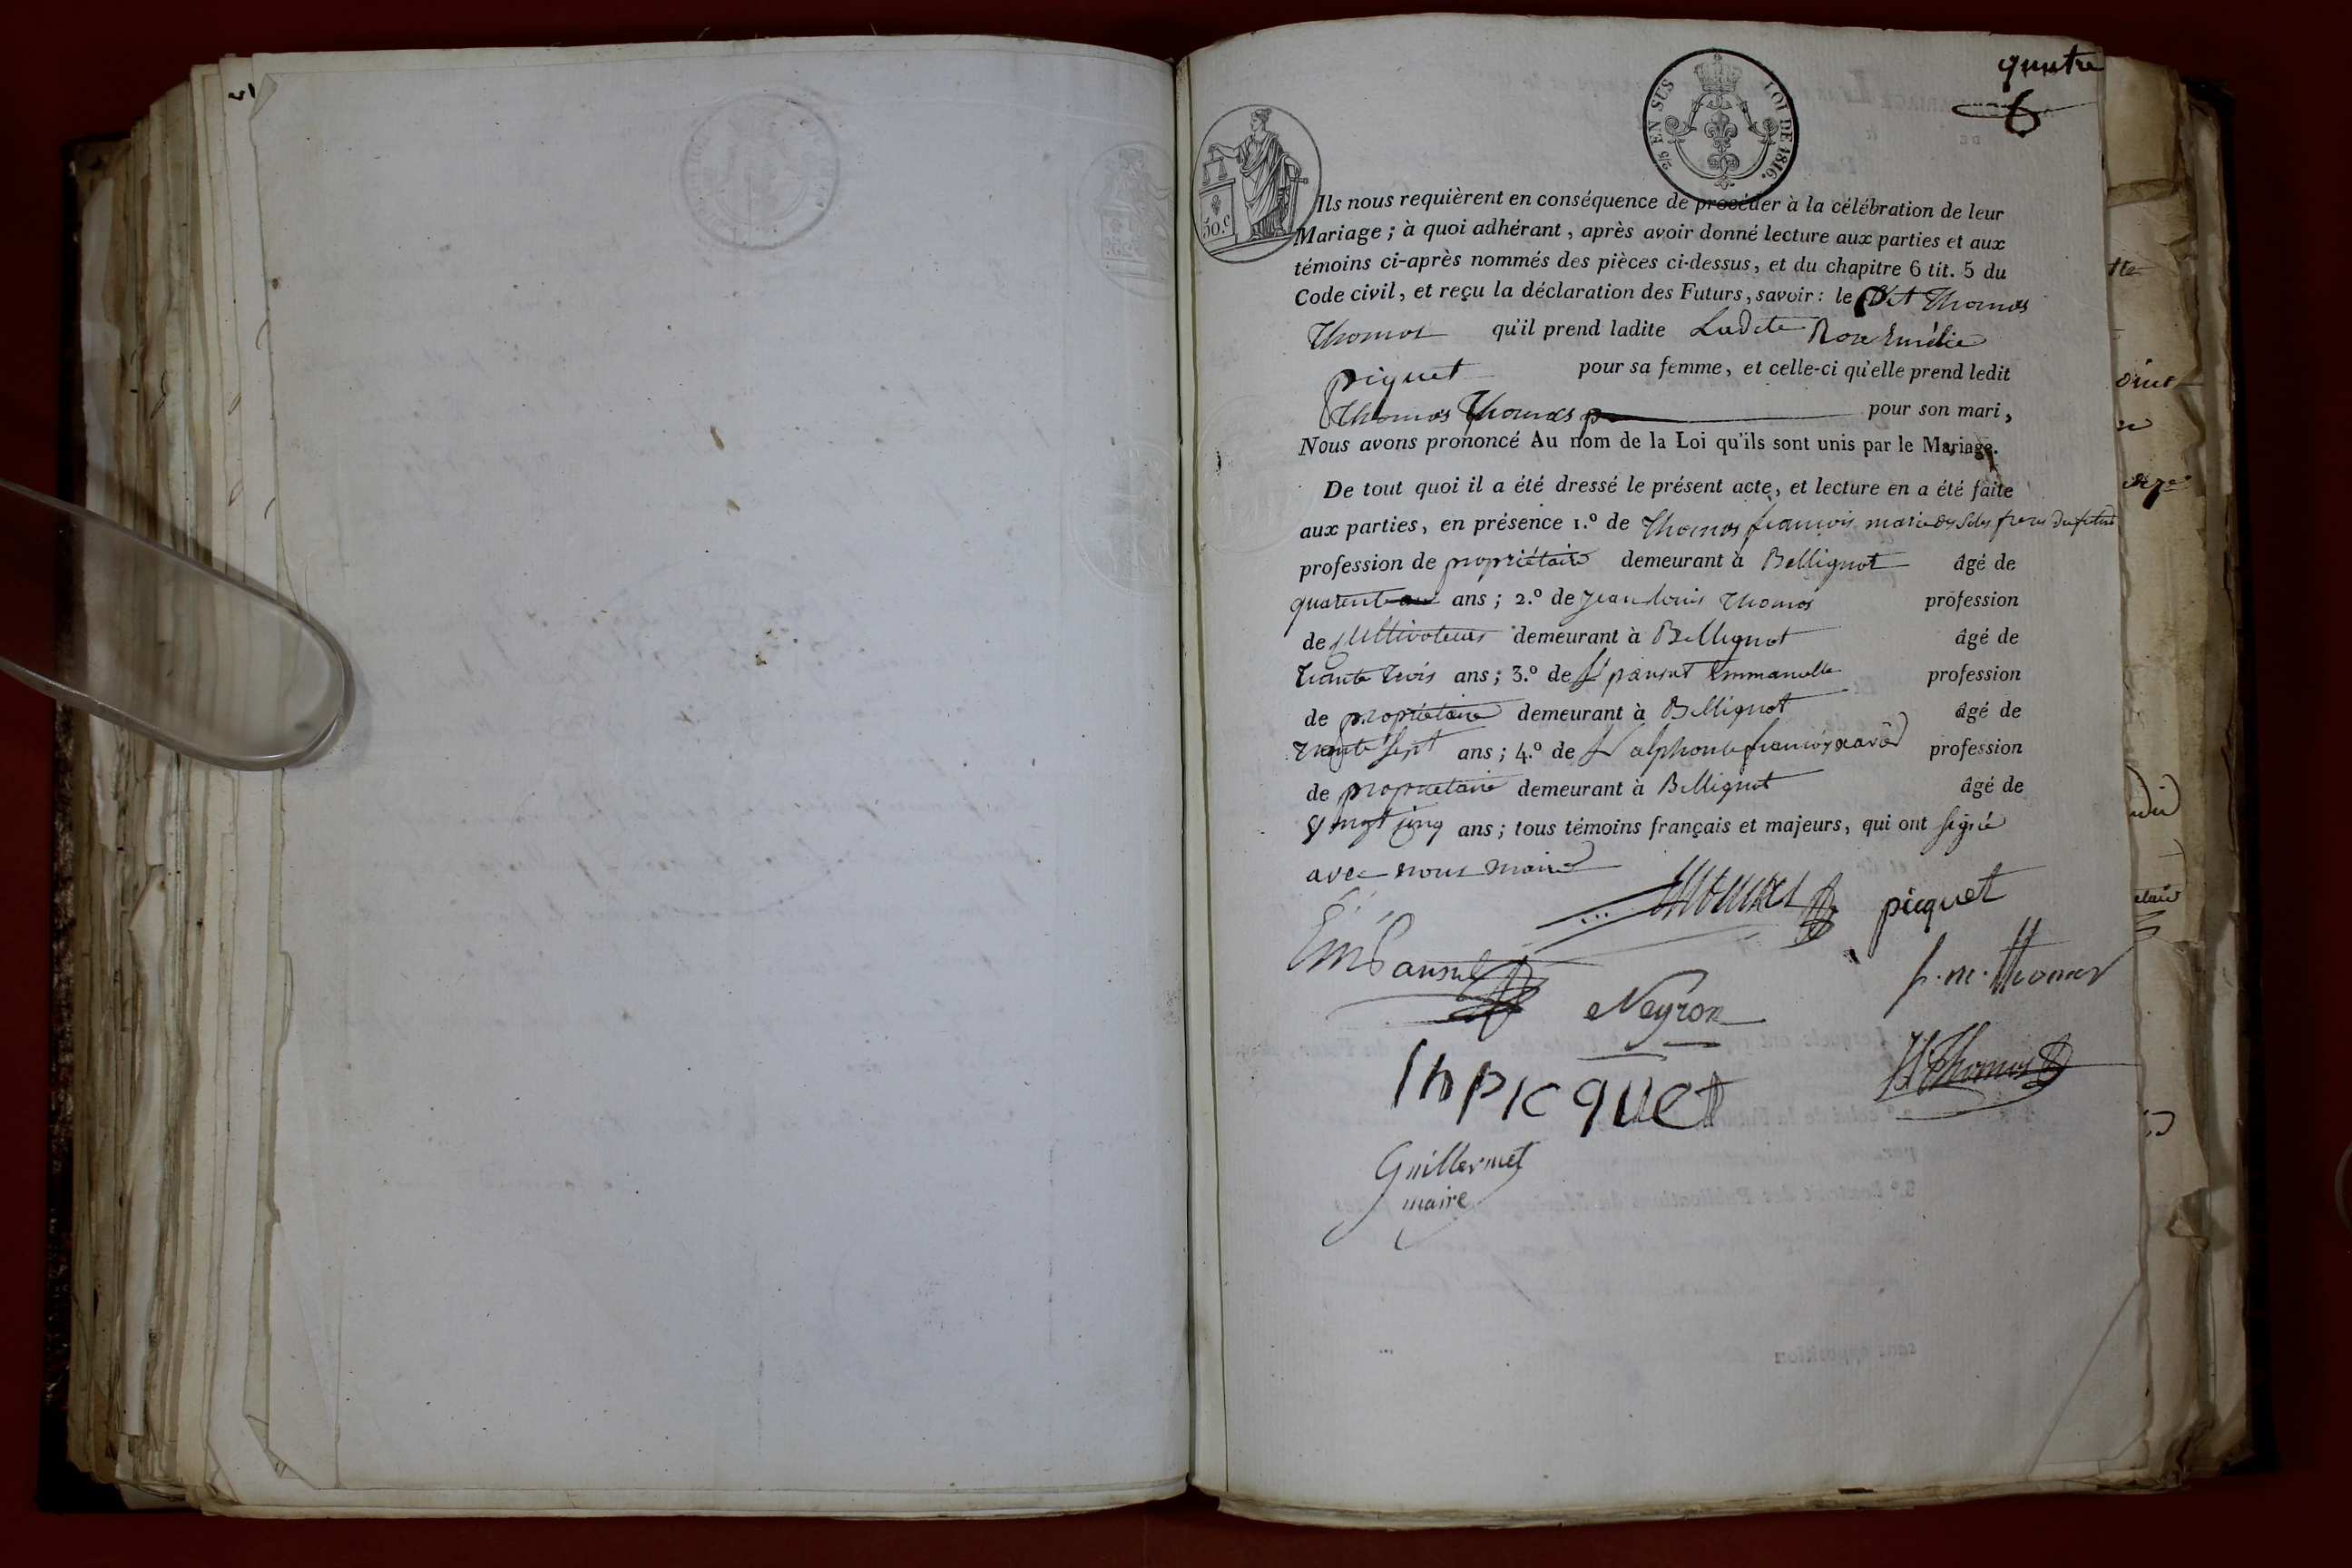 quatre
6
2/5 EN SUS LOI DE 1816.
50.c
Ils nous requièrent en conséquence de procéder à la célébration de leur
Mariage ; à quoi adhérant, après avoir donné lecture aux parties et aux
témoins ci-après nommés des pièces ci-dessus, et du chapitre 6 tit. 5 du
Code civil, et reçu la déclaration des Futurs, savoir : le Dit Thomas
Thomas qu'il prend ladite Ladite Rose Emélie
piquet pour sa femme, et celle-ci qu'elle prend ledit
Thomas Thomas pour son mari,
Nous avons prononcé Au nom de la Loi qu'ils sont unis par le Mariage.
De tout quoi il a été dressé le présent acte, et lecture en a été faite
aux parties, en présence 1.º de Thomas francois marie frere du futur
profession de propriétaire demeurant à Bellignat âgé de
quarente ans ; 2.º de jean louis Thomas profession
de Cultivateur demeurant à Bellignat âgé de
trante trois ans ; 3.º de pansut Emmanuelle profession
de propriétaire demeurant à Bellignat âgé de
trante sept ans ; 4.º de alphonse francois xavié profession
de propriétaire demeurant à Bellignat âgé de
vingt cinq ans ; tous témoins français et majeurs, qui ont signé
avec nous maire
Thomas picquet
Em Pansut
f. m. thomas
Neyron
Thomas
picquet
Guillermet
maire
sans opposition